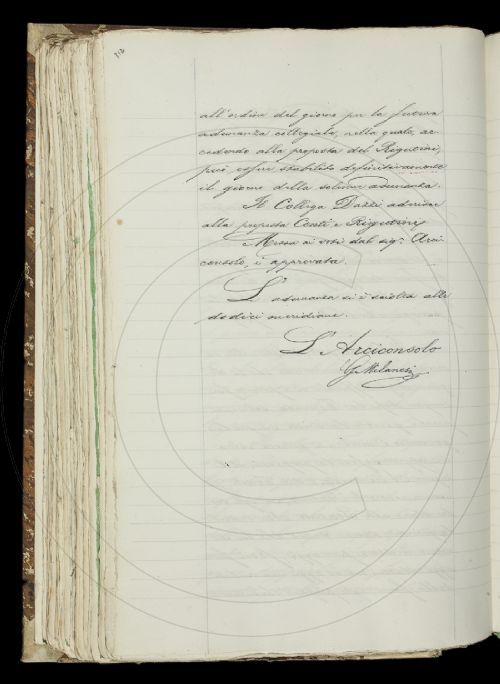 all'ordine del giorno per la futura
adunanza collegiale, nella quale, ac-
cedendo alla proposta del Rigutini,
può esser stabilito definitivamente
il giorno della solenne adunanza.
Il Collega Dazzi aderisce
alla proposta Cesti e Rigutini,
e Messa ai voti dal sig. Arci-
consolo, è approvata.
L'adunanza si è sciolta alle
dodici meridiane.
L'Arciconsolo
G. Milanesi